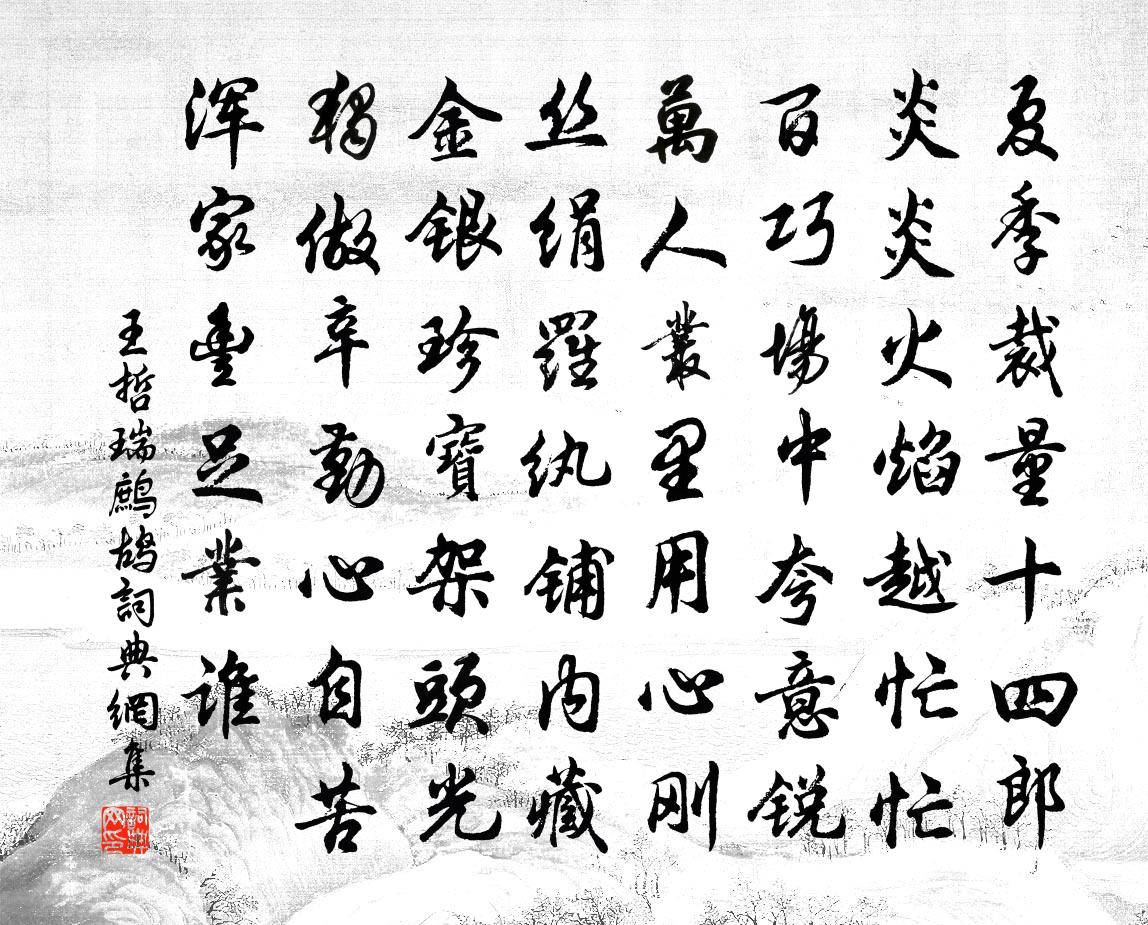 夏季裁量十四郎
炎炎火焰越忙忙
百巧場中夸意銳
萬人叢里用心刚
丝绢羅紈铺内藏
金銀珍寶架頭光
獨做辛勤心自苦
渾家豐足業谁
王哲瑞鷓鴣詞典網集